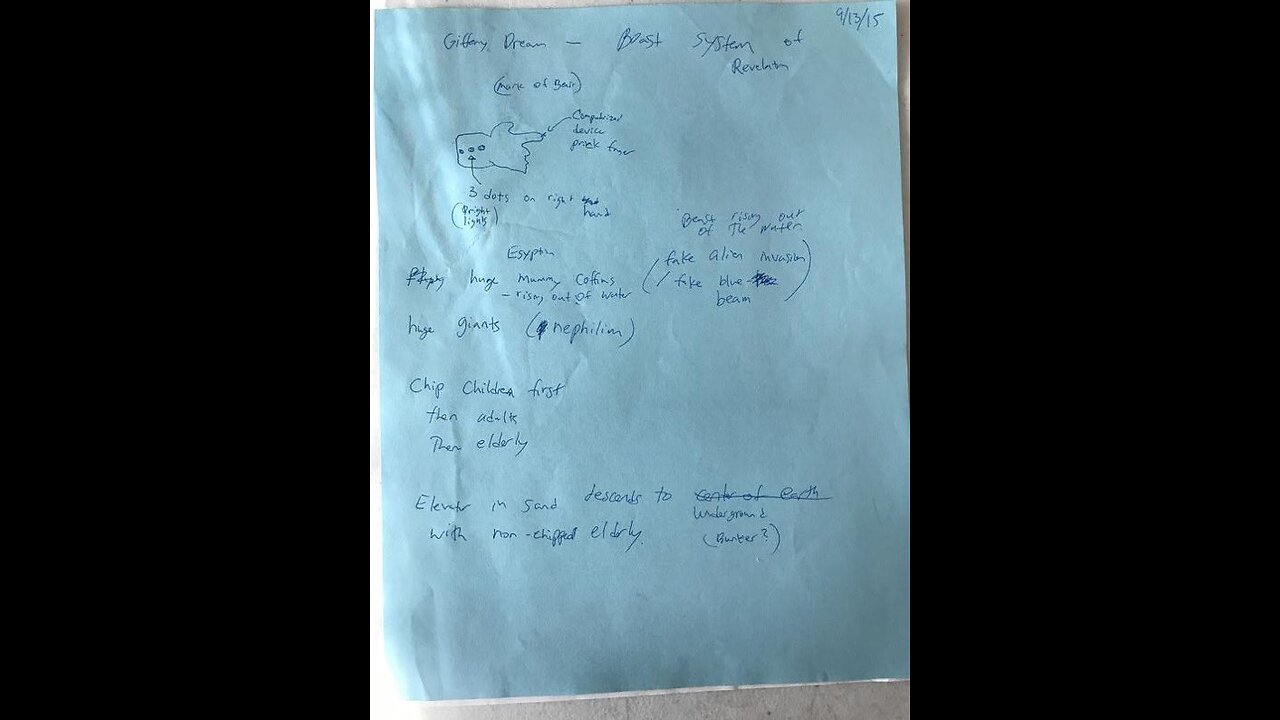 9/13/15
Giffeny Dream — Beast System of
Revelation
(Mark of Beast)
Computerized
device
prick finger
3 dots on right
hand
(Bright
lights)
Beast rising out
of The water
Egyptian
huge Mummy Coffins
- rising out of water
(fake alien invasion
/ fake blue
beam)
huge giants (nephilim)
Chip Children first
then adults
Then elderly
Elevator in sand descends to center of earth
Underground
with non-chipped elderly. (Bunker?)